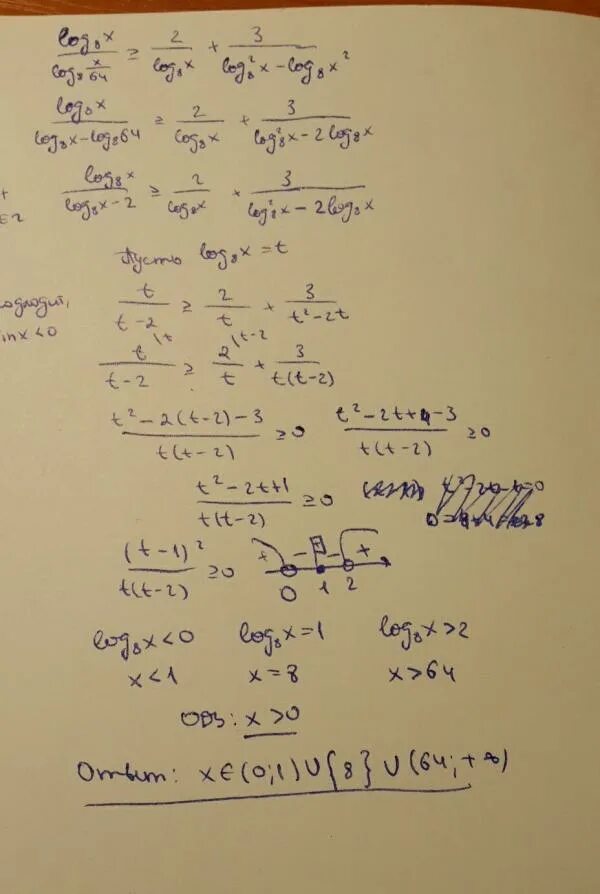 log₈x / log₈ x/64 ≥ 2 / log₈x + 3 / log₈²x − log₈x²
log₈x / log₈x − log₈64 ≥ 2 / log₈x + 3 / log₈²x − 2log₈x
log₈x / log₈x − 2 ≥ 2 / log₈x + 3 / log₈²x − 2log₈x
Пусть log₈x = t
t / t − 2 ≥ 2 / t + 3 / t² − 2t
inx < 0
t / t − 2 ≥ 2 / t + 3 / t(t − 2)
t² − 2(t − 2) − 3 / t(t − 2) ≥ 0 t² − 2t + 4 − 3 / t(t − 2) ≥ 0
t² − 2t + 1 / t(t − 2) ≥ 0
(t − 1)² / t(t − 2) ≥ 0 + − − + 0 1 2
log₈x < 0 log₈x = 1 log₈x > 2
x < 1 x = 8 x > 64
ОДЗ: x > 0
Ответ: x ∈ (0; 1) ∪ {8} ∪ (64; +∞)